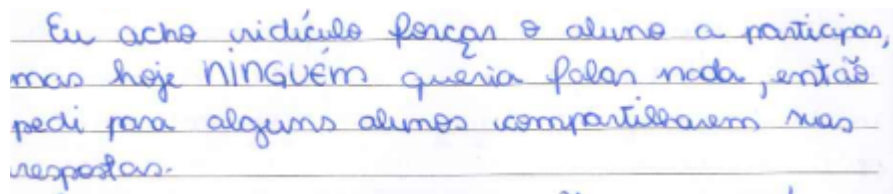 Eu acho ridículo forçar o aluno a participar,
mas hoje NINGUÉM queria falar nada, então
pedi para alguns alunos compartilharem suas
respostas.